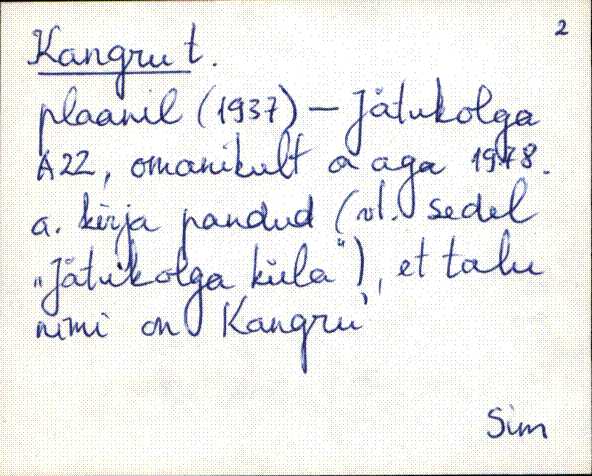 2
Kangru t.
plaanil (1937) — Jätukolga
A22, omanikult a aga 1978.
a. kirja pandud (vt. sedel
„Jätukolga küla"), et talu
nimi on Kangru
Sim